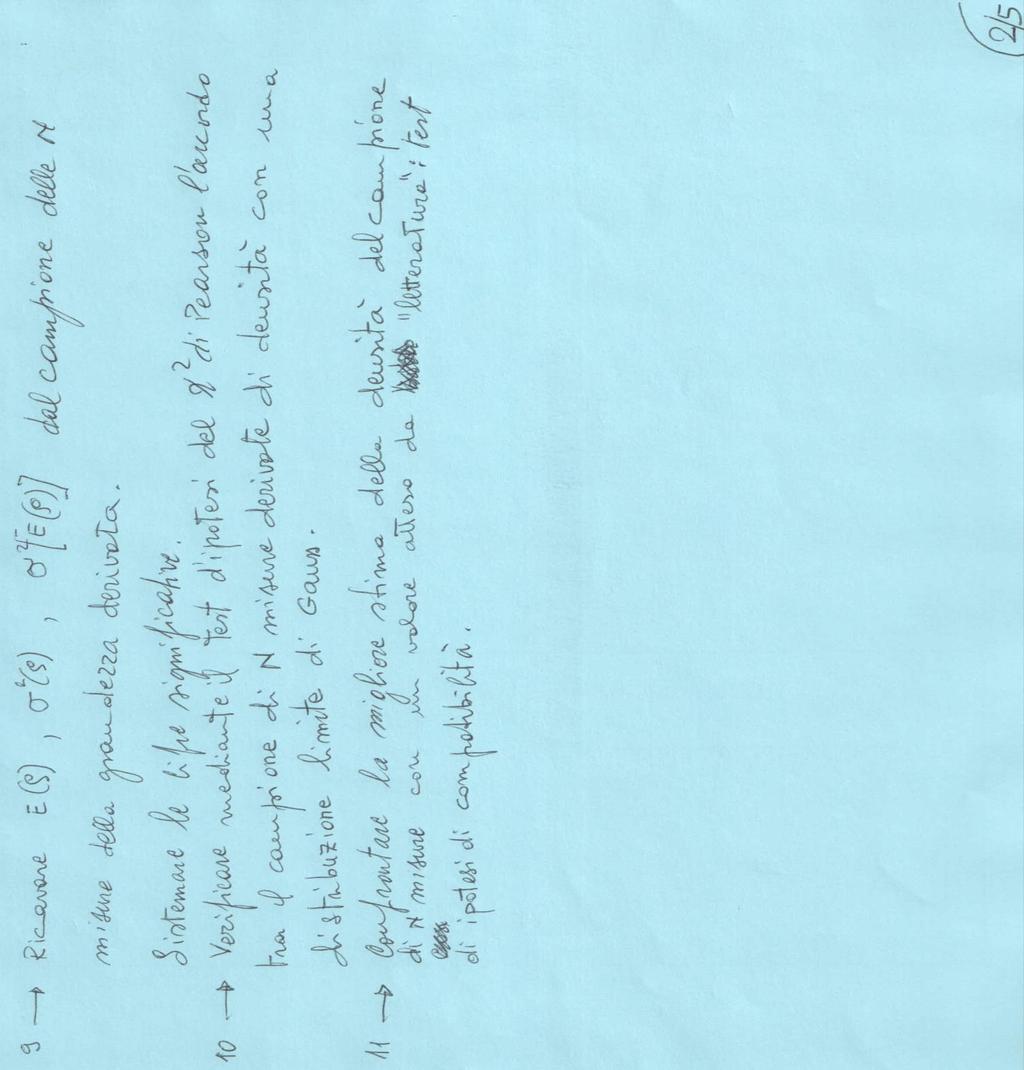 9 → Ricavare E(ρ), σ²(ρ), σ²[E(ρ)] dal campione delle N
misure della grandezza derivata.
Sistemare le cifre significative.
10 → Verificare mediante il test d'ipotesi del χ² di Pearson l'accordo
tra il campione di N misure derivate di densità con una
distribuzione limite di Gauss.
11 → Confrontare la migliore stima della densità del campione
di N misure con un valore atteso da "letteratura": test
di ipotesi di compatibilità.
2/5